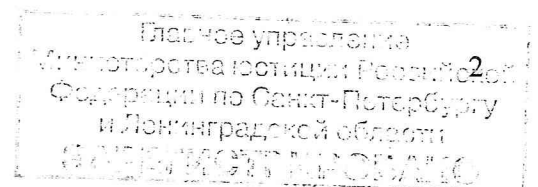 Главное управление
Министерства юстиции Российской 2
Федерации по Санкт-Петербургу
и Ленинградской области